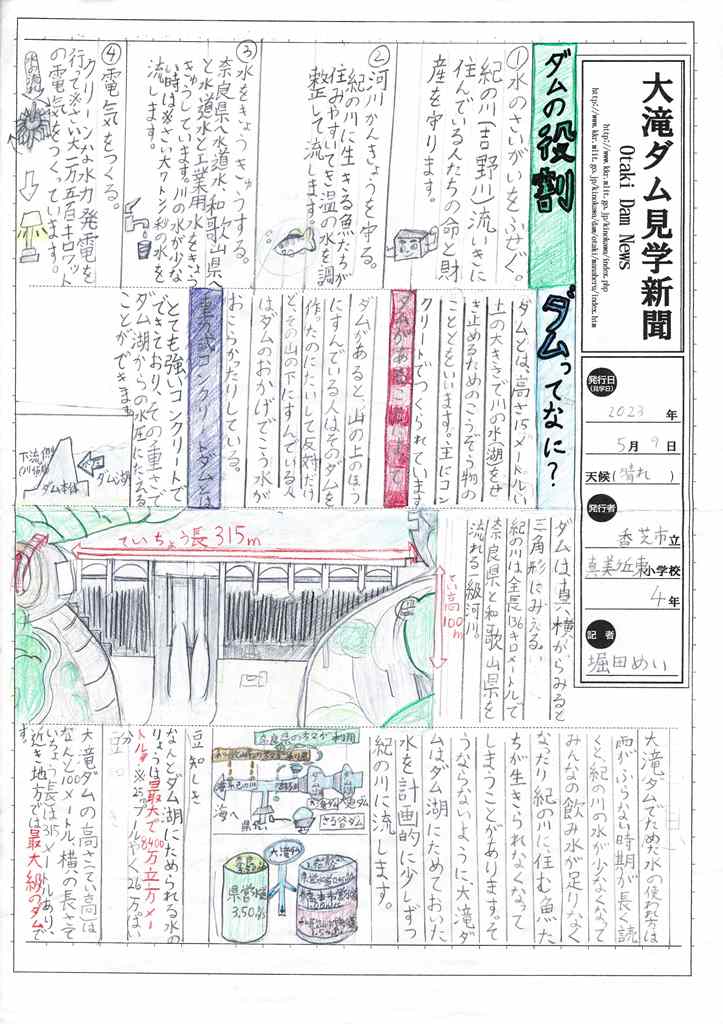 大滝ダム見学新聞
Otaki Dam News
http://www.kkr.mlit.go.jp/kinokawa/index.php
発行日
(見学日)
2023年
5月9日
天候(晴れ)
発行者
香芝市立
真美ヶ丘東小学校
4年
記者
堀田めい
ダムの役割
①水のさいがいをふせぐ。
紀の川(吉野川)流いきに
住んでいる人たちの命と財
産を守ります。
②河川かんきょうを守る。
紀の川に生きる魚たちが
住みやすいてき温の水を調
整して流します。
③水をきょうきゅうする。
奈良県へ水道水、和歌山県へ
と水道水と工業用水をきょう
きゅうしています。川の水が少な
い時は※さい大
流します。
④電気をつくる。
クリーンな水力発電を
行って※さい大一万五百キロワット
の電気をつくっています。
ダムってなに?
ダムとは、高さ15メートルい
上の大きさで川の水(湖)をせ
き止めるためのこうぞう物の
ことをいいます。主にコン
クリートでつくられています
ダムがあると、山の上のほう
にすんでいる人はそのダムを
作ったのにたいして反対だけ
ど、その山の下にすんでいる人
はダムのおかげでこう水が
おこらかったりしている。
重力式コンクリートダムとは
とても強いコンクリートで
できており、その重さで
ダム湖からの水圧にたえる
ことができます
ダム湖
ダム本体
下流側
ダムは真横からみると
三角形にみえる。
紀の川は全長136キロメートルで
奈良県と和歌山県を
流れる一級河川。
ていちょう長315m
てい高100m
大滝ダムでためた水の使われ方は
雨がふらない時期が長く続
くと紀の川の水が少なくなって
みんなの飲み水が足りなく
なったり紀の川に住む魚た
ちが生きられなくなって
しまうことがあります。そ
うならないように大滝ダ
ムはダム湖にためておいた
水を計画的に少しずつ
紀の川に流します。
海へ
大滝ダム
県営水道
3.50
豆知しき
なんとダム湖にためられる水の
りょうは最大で8400万立方メー
トル!※25mプールやく26万ぱい
分
大滝ダムの高さ(てい高)は
なんと100メートル、横の長さ(て
いちょう長)は315メートルあり、
近き地方では最大級のダムで
す。